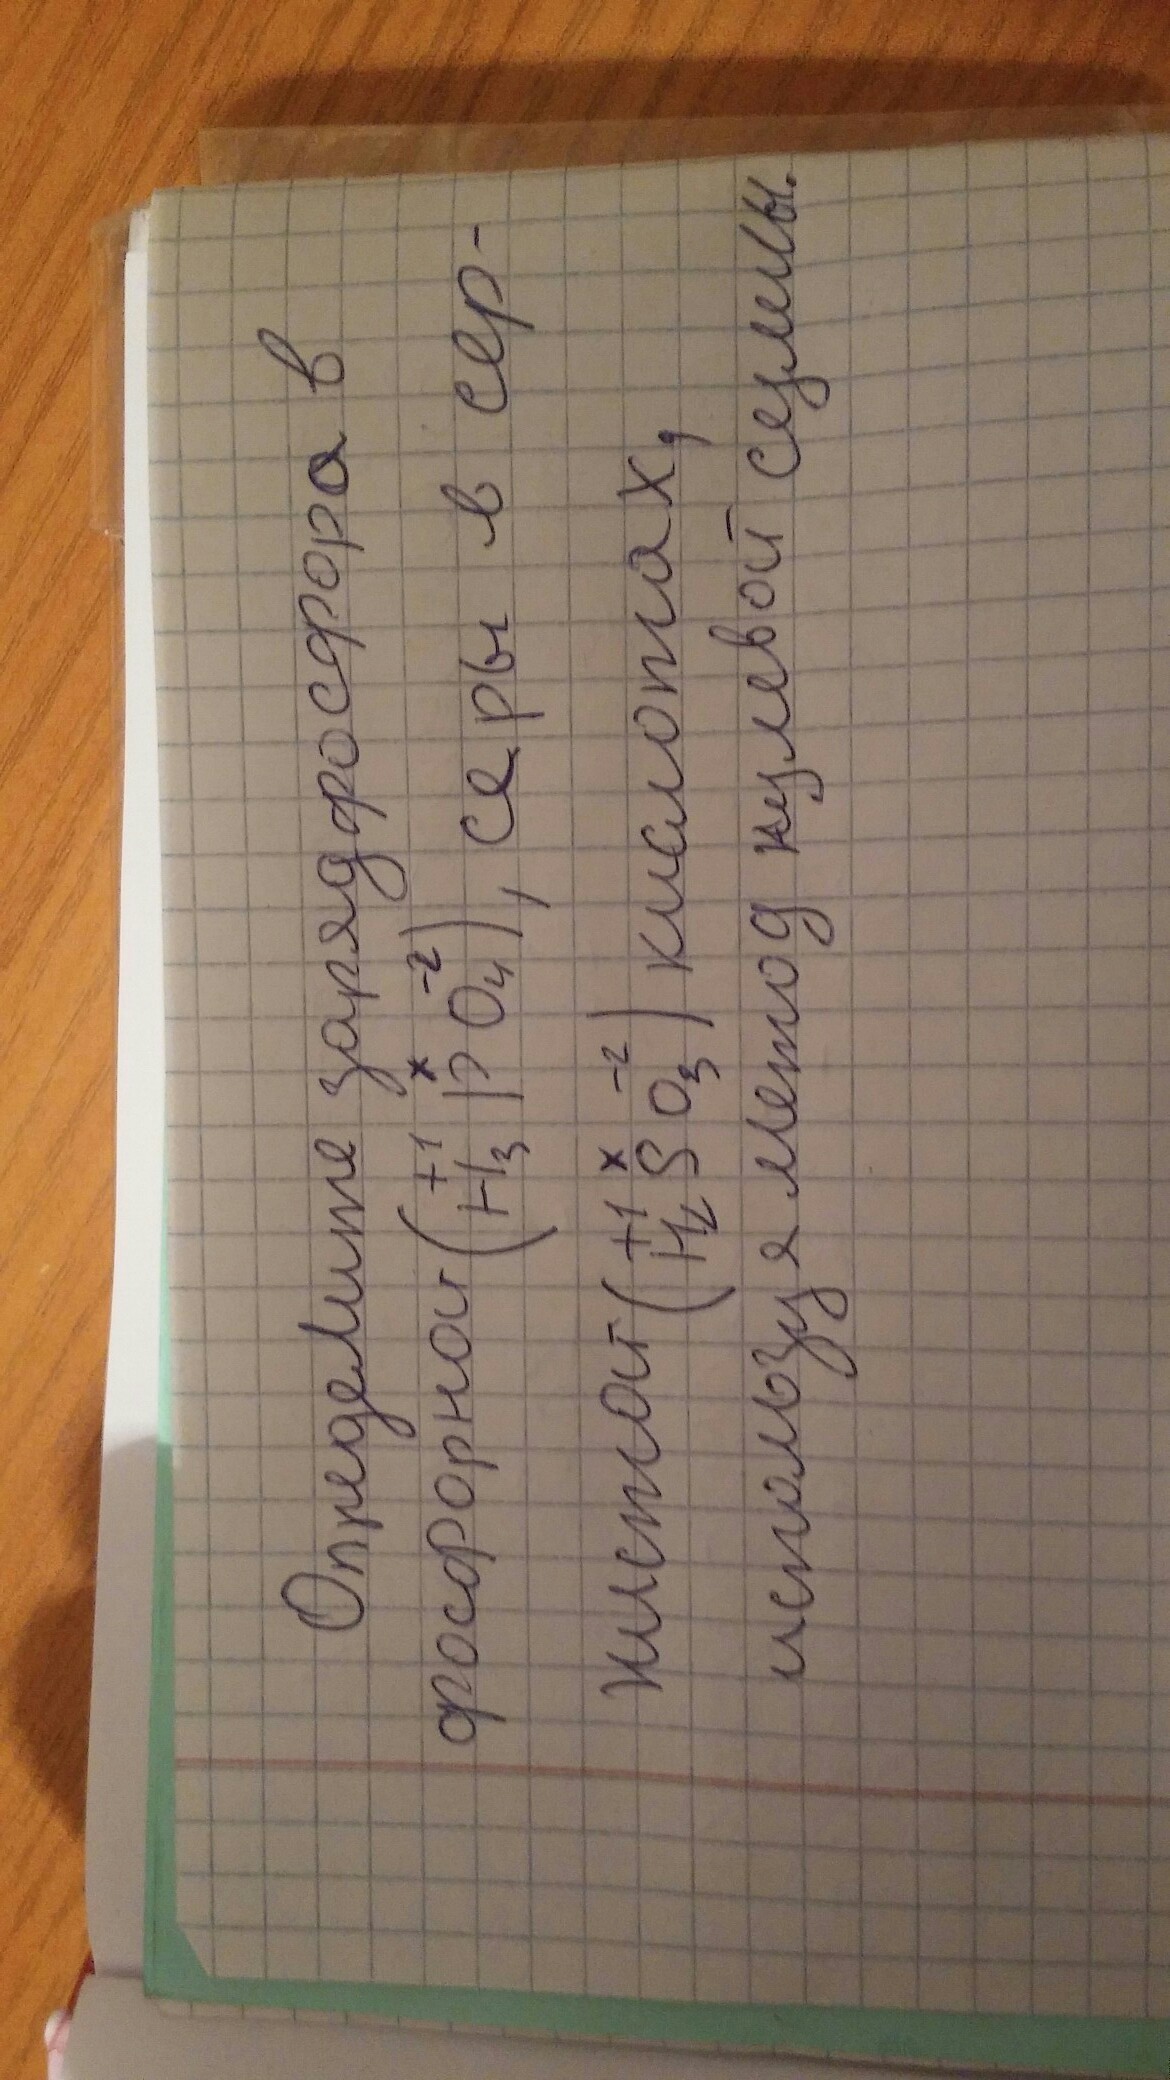 Определите заряд фосфора в
фосфорной (H₃⁺¹PˣO₄⁻²), серы в сер-
нистой (H₂⁺¹SˣO₃⁻²) кислотах,
используя метод нулевой суммы.